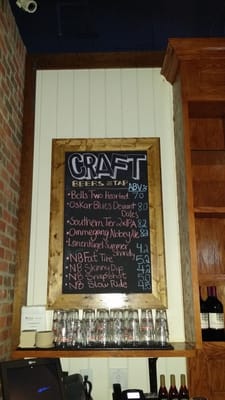 CRAFT
BEERS ON TAP ABV%
• Bells Two Hearted 7.0
• Oskar Blues Deviant Dales 8.0
• Southern Tier 2xIPA 8.2
• Ommegang Abbey Ale 8.2
• Leinenkugel Summer Shandy 4.2
• NB Fat Tire 5.2
• NB Skinny Dip 4.2
• NB Snapshot 5.0
• NB Slow Ride